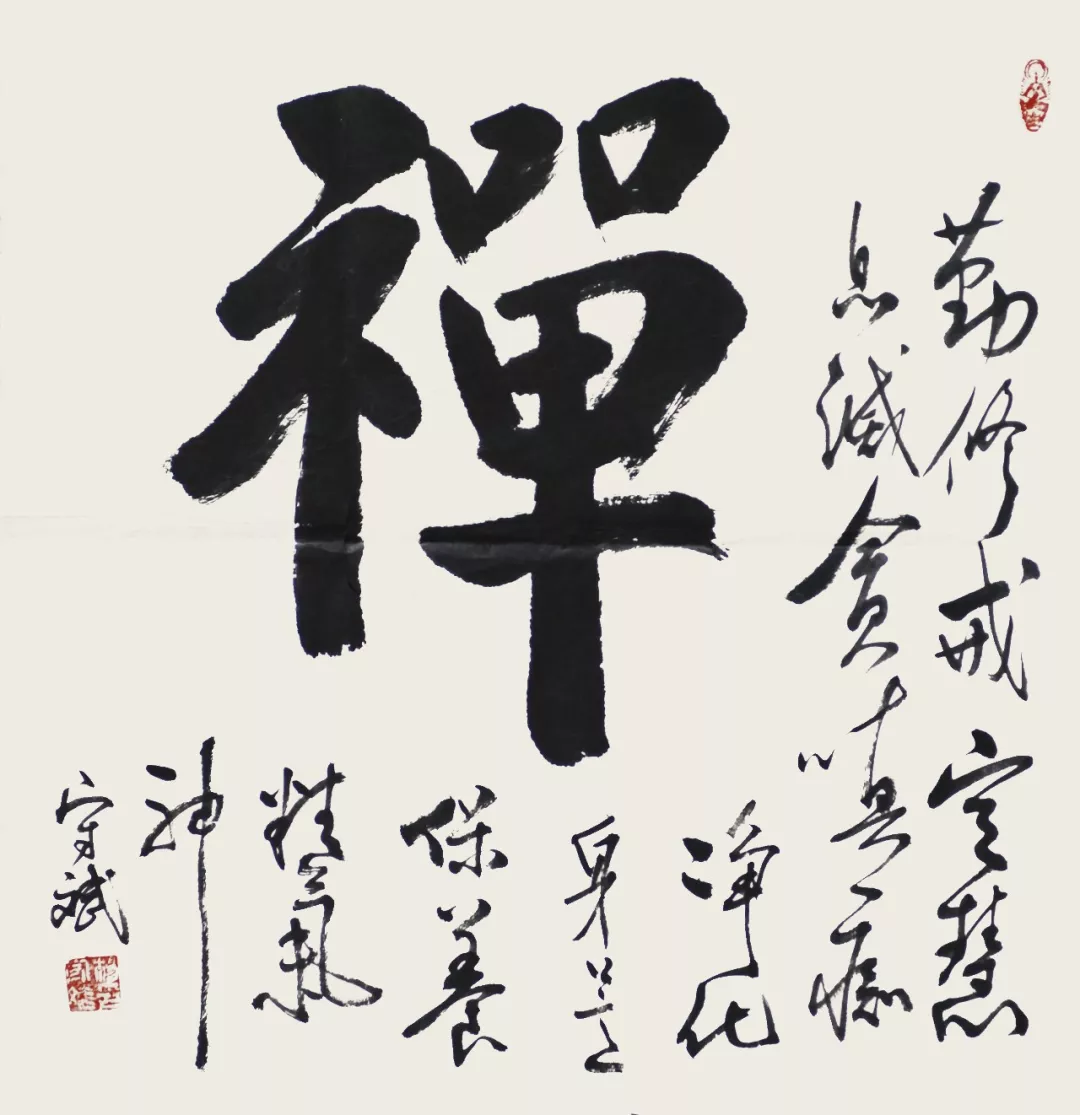 禪
勤修戒定慧
息滅貪嗔痴
净化
身口意
保養
精氣
神
守斌